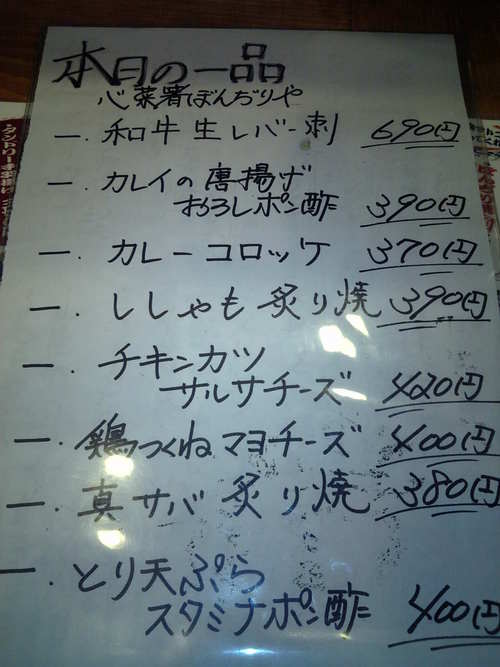 本日の一品
心菜署ぼんぢりや
一. 和牛生レバー刺 690円
一. カレイの唐揚げ
おろしポン酢 390円
一. カレーコロッケ 370円
一. ししゃも炙り焼 390円
一. チキンカツ
サルサチーズ 420円
一. 鶏つくねマヨチーズ 400円
一. 真サバ炙り焼 380円
一. とり天ぷら
スタミナポン酢 400円